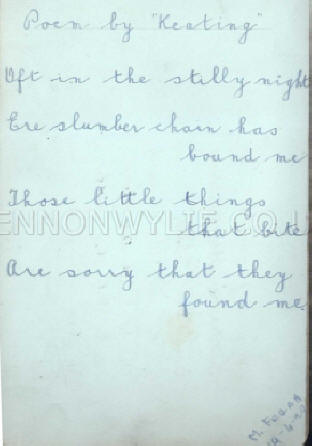 Poem by "Keating"
Oft in the stilly night
Ere slumber chain has
bound me
Those little things
that bite
ENNONWYLIE.CO.U
Are sorry that they
found me.